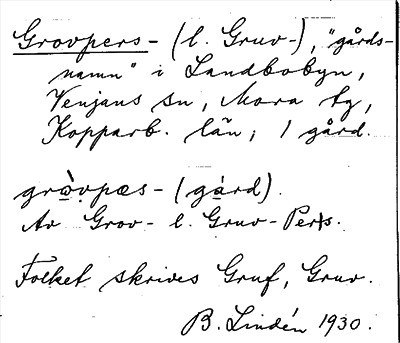 Grovpers- (l. Gruv-), "gårds-
namn" i Landbobyn,
Venjans sn, Mora tg,
Kopparb. län; 1 gård.
grὼvpæs- (gård).
Av Grov- l. Gruv-Pers.
Folket skrives Gruf, Gruv.
B. Lindén 1930.